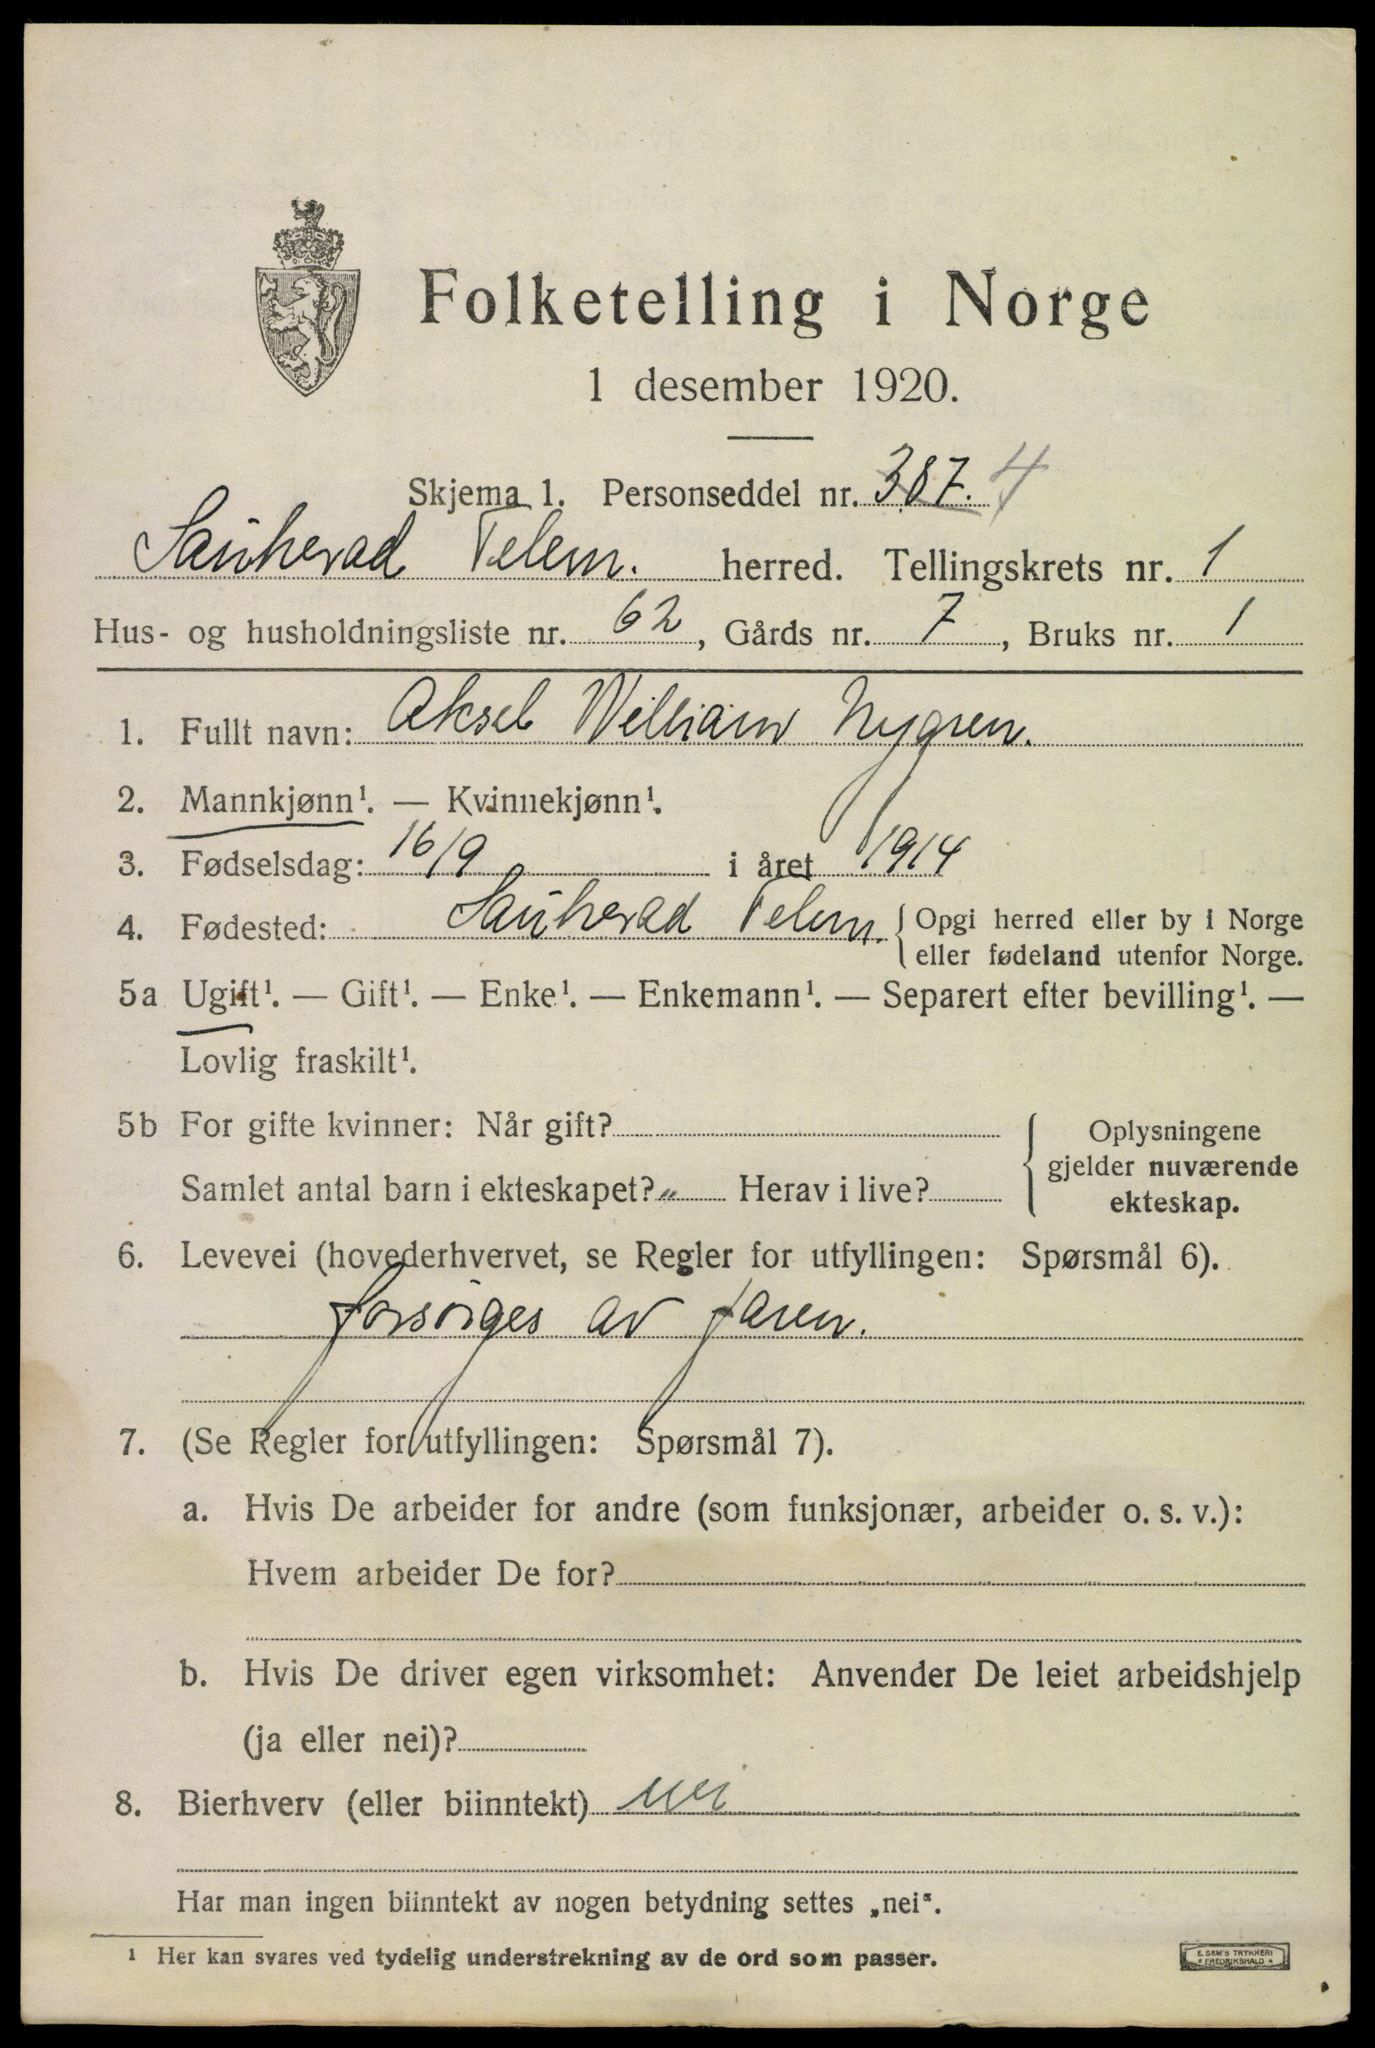 Folketelling i Norge
1 desember 1920.
Skjema 1. Personseddel nr. 387. 4
Sauherad Telem. herred. Tellingskrets nr. 1
Hus- og husholdningsliste nr. 62, Gårds nr. 7, Bruks nr. 1
1. Fullt navn: Aksel William Nygren.
2. Mannkjønn¹. — Kvinnekjønn¹.
3. Fødselsdag: 16/9 i året 1914
4. Fødested: Sauherad Telem. { Opgi herred eller by i Norge
eller fødeland utenfor Norge.
5a Ugift¹. — Gift¹. — Enke¹. — Enkemann¹. — Separert efter bevilling¹. —
Lovlig fraskilt¹.
5b For gifte kvinner: Når gift?
Samlet antal barn i ekteskapet? „ Herav i live?
{ Oplysningene
gjelder nuværende
ekteskap.
6. Levevei (hovederhvervet, se Regler for utfyllingen: Spørsmål 6).
forsørges av faren.
7. (Se Regler for utfyllingen: Spørsmål 7).
a. Hvis De arbeider for andre (som funksjonær, arbeider o. s. v.):
Hvem arbeider De for?
b. Hvis De driver egen virksomhet: Anvender De leiet arbeidshjelp
(ja eller nei)?
8. Bierhverv (eller biinntekt) nei
Har man ingen biinntekt av nogen betydning settes „nei“.
¹ Her kan svares ved tydelig understrekning av de ord som passer.
E. SEM'S TRYKKERI
* FREDRIKSHALD *